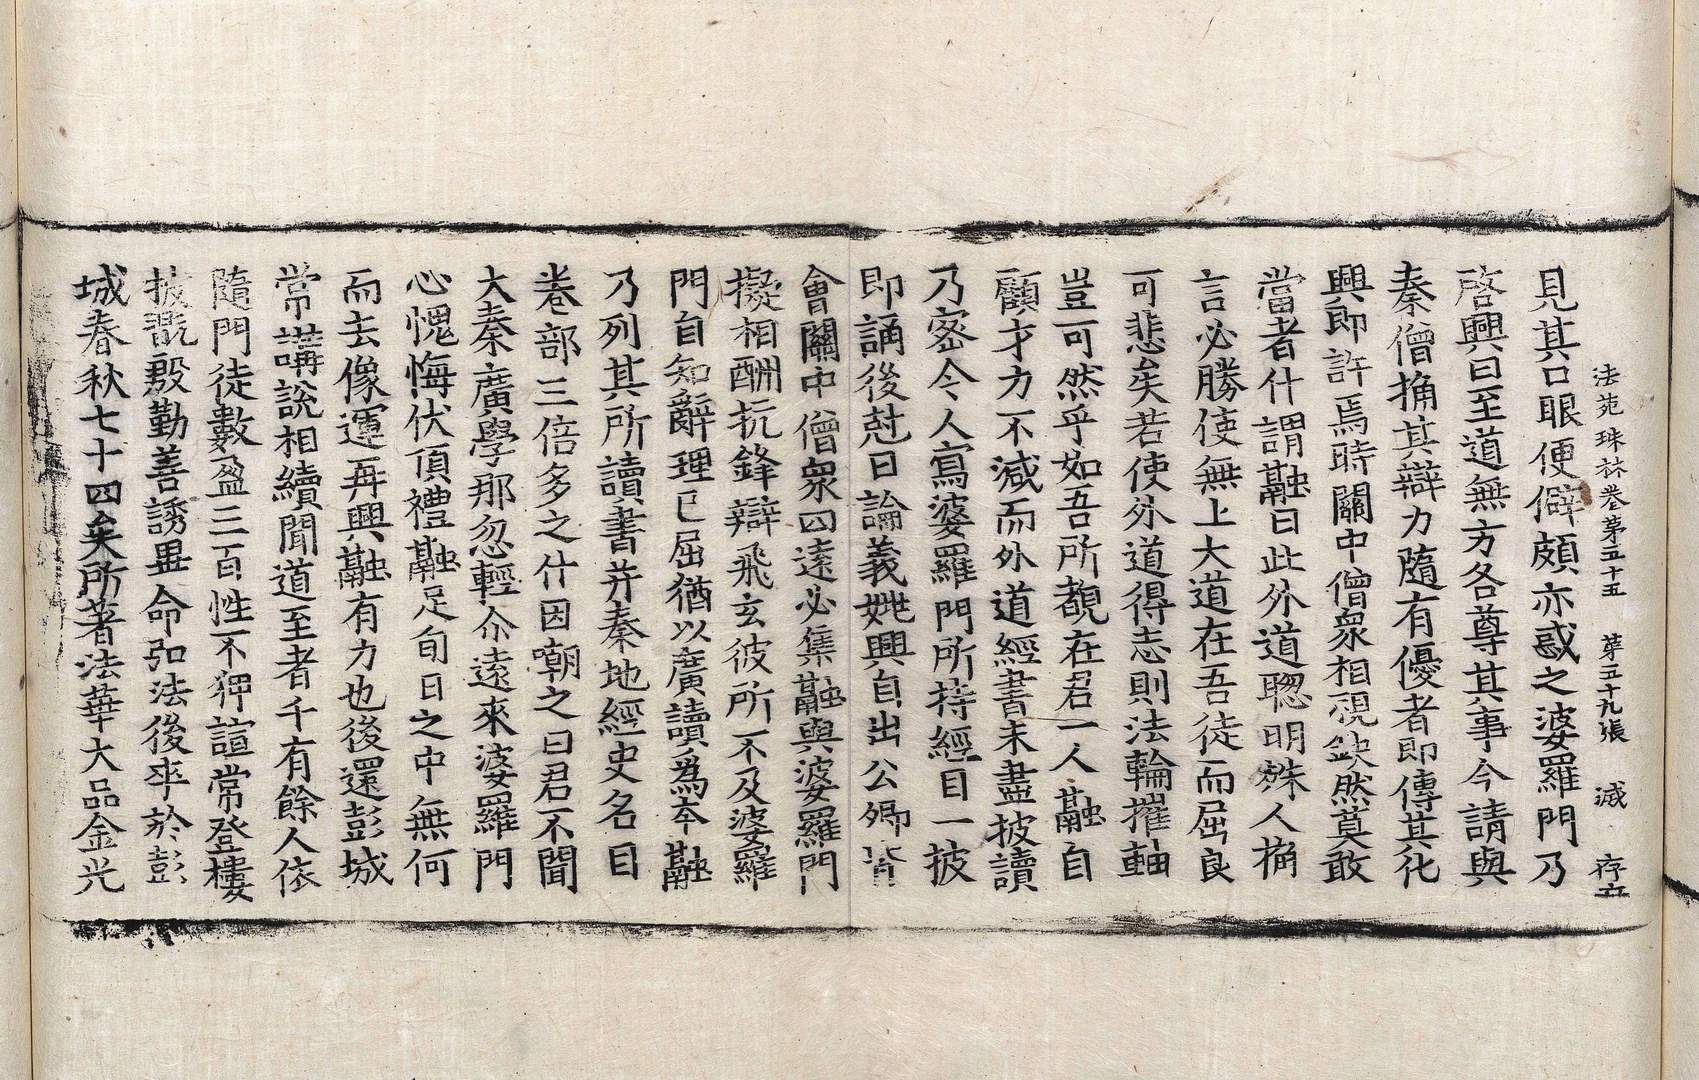 法苑珠林卷第五十五 第五十九張 滅 存立
見其口眼便僻頗亦惑之婆羅門乃
啓興曰至道無方各尊其事今請與
秦僧捔其辯力隨有優者即傳其化
興即許焉時關中僧衆相視缺然莫敢
當者什謂融曰此外道聦明殊人捔
言必勝使無上大道在吾徒而屈良
可悲矣若使外道得志則法輪摧軸
豈可然乎如吾所覩在君一人融自
顧才力不減而外道經書未盡披讀
乃密令人寫婆羅門所持經目一披
即誦後尅日論義姚興自出公卿皆
會關中僧衆四遠必集融與婆羅門
擬相酬抗鋒辯飛玄彼所不及婆羅
門自知辭理已屈猶以廣讀爲夲融
乃列其所讀書并秦地經史名目
卷部三倍多之什因嘲之曰君不聞
大秦廣學那忽輕尒遠來婆羅門
心愧悔伏頂禮融足旬日之中無何
而去像運再興融有力也後還彭城
常講說相續聞道至者千有餘人依
隨門徒數盈三百性不狎諠常登樓
披翫殷勤善誘畢命弘法後卒於彭
城春秋七十四矣所著法華大品金光